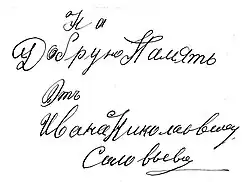 На
Добрую Память
Отъ
Ивана Николаевича
Соловьева